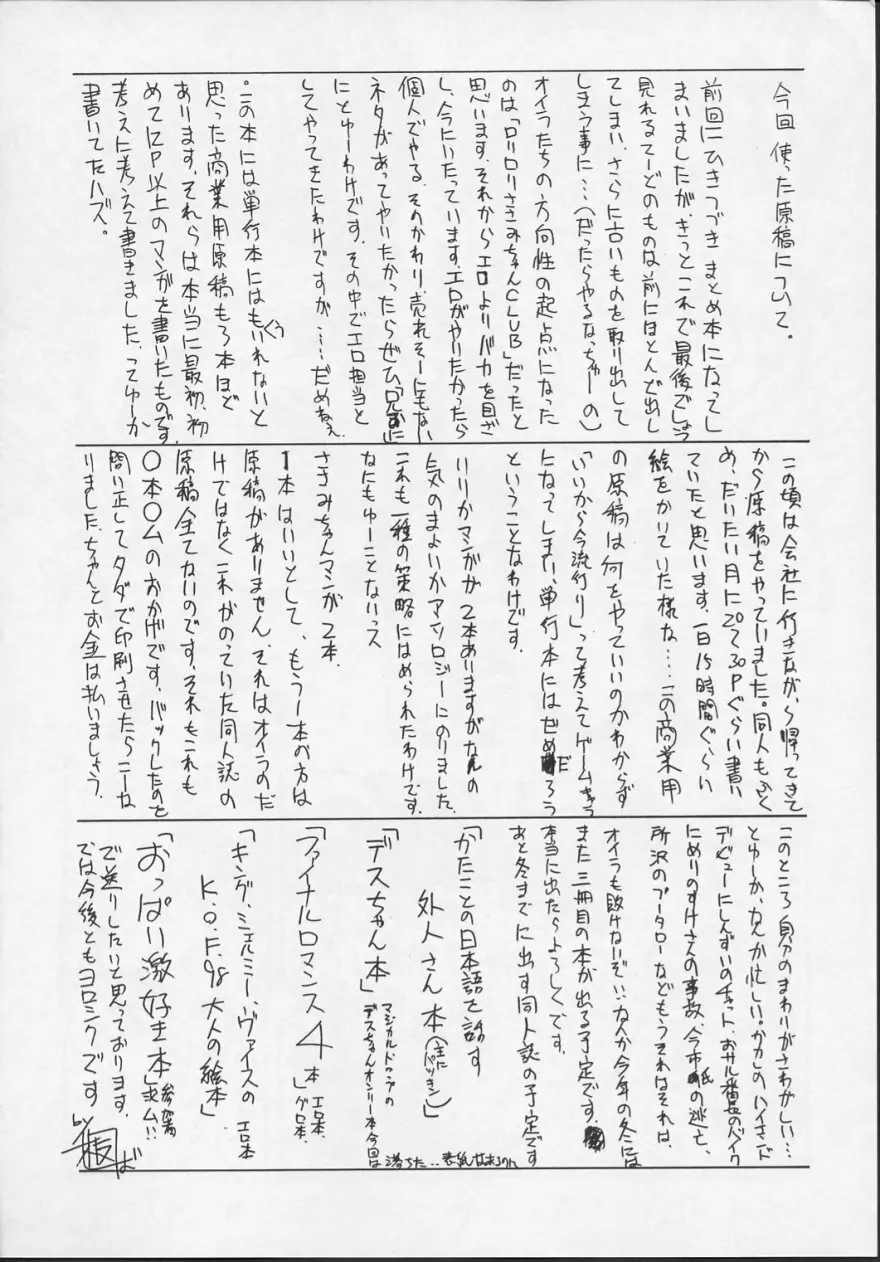 今回使った原稿について。
前回にひきつづきまとめ本になってし
まいましたが、きっとこれで最後でしょう
見れるてーどのものは前にほとんど出し
てしまい、さらに古いものを取り出して
しまう事に…(だったらやるなっちゅーの)
オイラたちの方向性の起点になった
のは「ロリロリさきみちゃんCLUB」だったと
思います。それからエロよりバカを目ざ
し、今にいたっています。エロがやりたかったら
個人でやる、そのかわり、売れそーにもない
ネタがあってやりたかったらぜひ
にとゆーわけです。その中でエロ担当と
してやってきたわけですが……だめねぇ
。この本には単行本にはもぐりいれないと
思った商業用原稿も3本ほど
あります。それらは本当に最初、初
めて12P以上のマンガを書いたものです
考えに考えて書きました、ってゆーか
書いてたハズ。
この頃は会社に行きながら、帰ってきて
から原稿をやっていました。同人もふく
め、だいたい月に20〜30Pぐらい書い
ていたと思います。一日15時間ぐらい
絵をかいていた様な……この商業用
の原稿は何をやっていいのかわからず
「いいから今流行り」って考えてゲームキャラ
になってしまい、単行本にはだめだろう
ということなわけです。
いりかマンガが2本ありますがなんの
気のまよいかアンソロジーにのりました
これも一種の策略にはめられたわけです。
なにもゆーことないっス
さきみちゃんマンガ2本.
1本はいいとして、もう1本の方は
原稿がありません。それはオイラのだ
けではなくこれがのっていた同人誌の
原稿全てないのです。それもこれも
〇本〇ムのおかげです。バックしたのを
問い正してタダで印刷させたらこーな
りました、ちゃんとお金は払いましょう。
このところ自分のまわりがさわがしい…
とゆーか、なんか忙しい。かかしのハイエンド
デビューにしんずいのチャット、おサル番長のバイク
にめりのすけさんの事故、今市氏の逃亡、
所沢のプータローなどもうそれはそれは、
オイラも敗けないぞ!!なんか今年の冬には
また三冊目の本が出る予定です!
本当に出たらよろしくです。
あと冬までに出す同人誌の予定です
「かたことの日本語を話す
外人さん本(主にパツキン)」
「デスちゃん本」マジカルドロップの
デスちゃんオンリー本今回は
落ちた‥表紙
「ファイナルロマンス4本」エロ本、
グロ本.
「キング、シェルミー、ヴァイスのエロ本
K.O.F.98大人の絵本」
「おっぱい激好き本」参加者
求ム!!
で送りしたいと思っております。
では今後ともヨロシクです
by